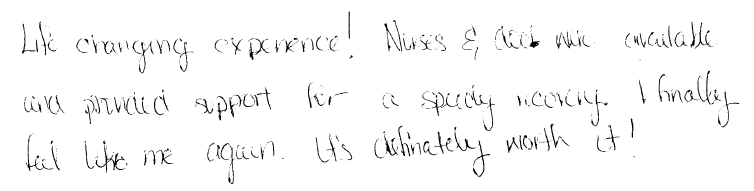 Life changing experience! Nurses & docs were available
and provided support for a speedy recovery. I finally
feel like me again. It's definately worth it!